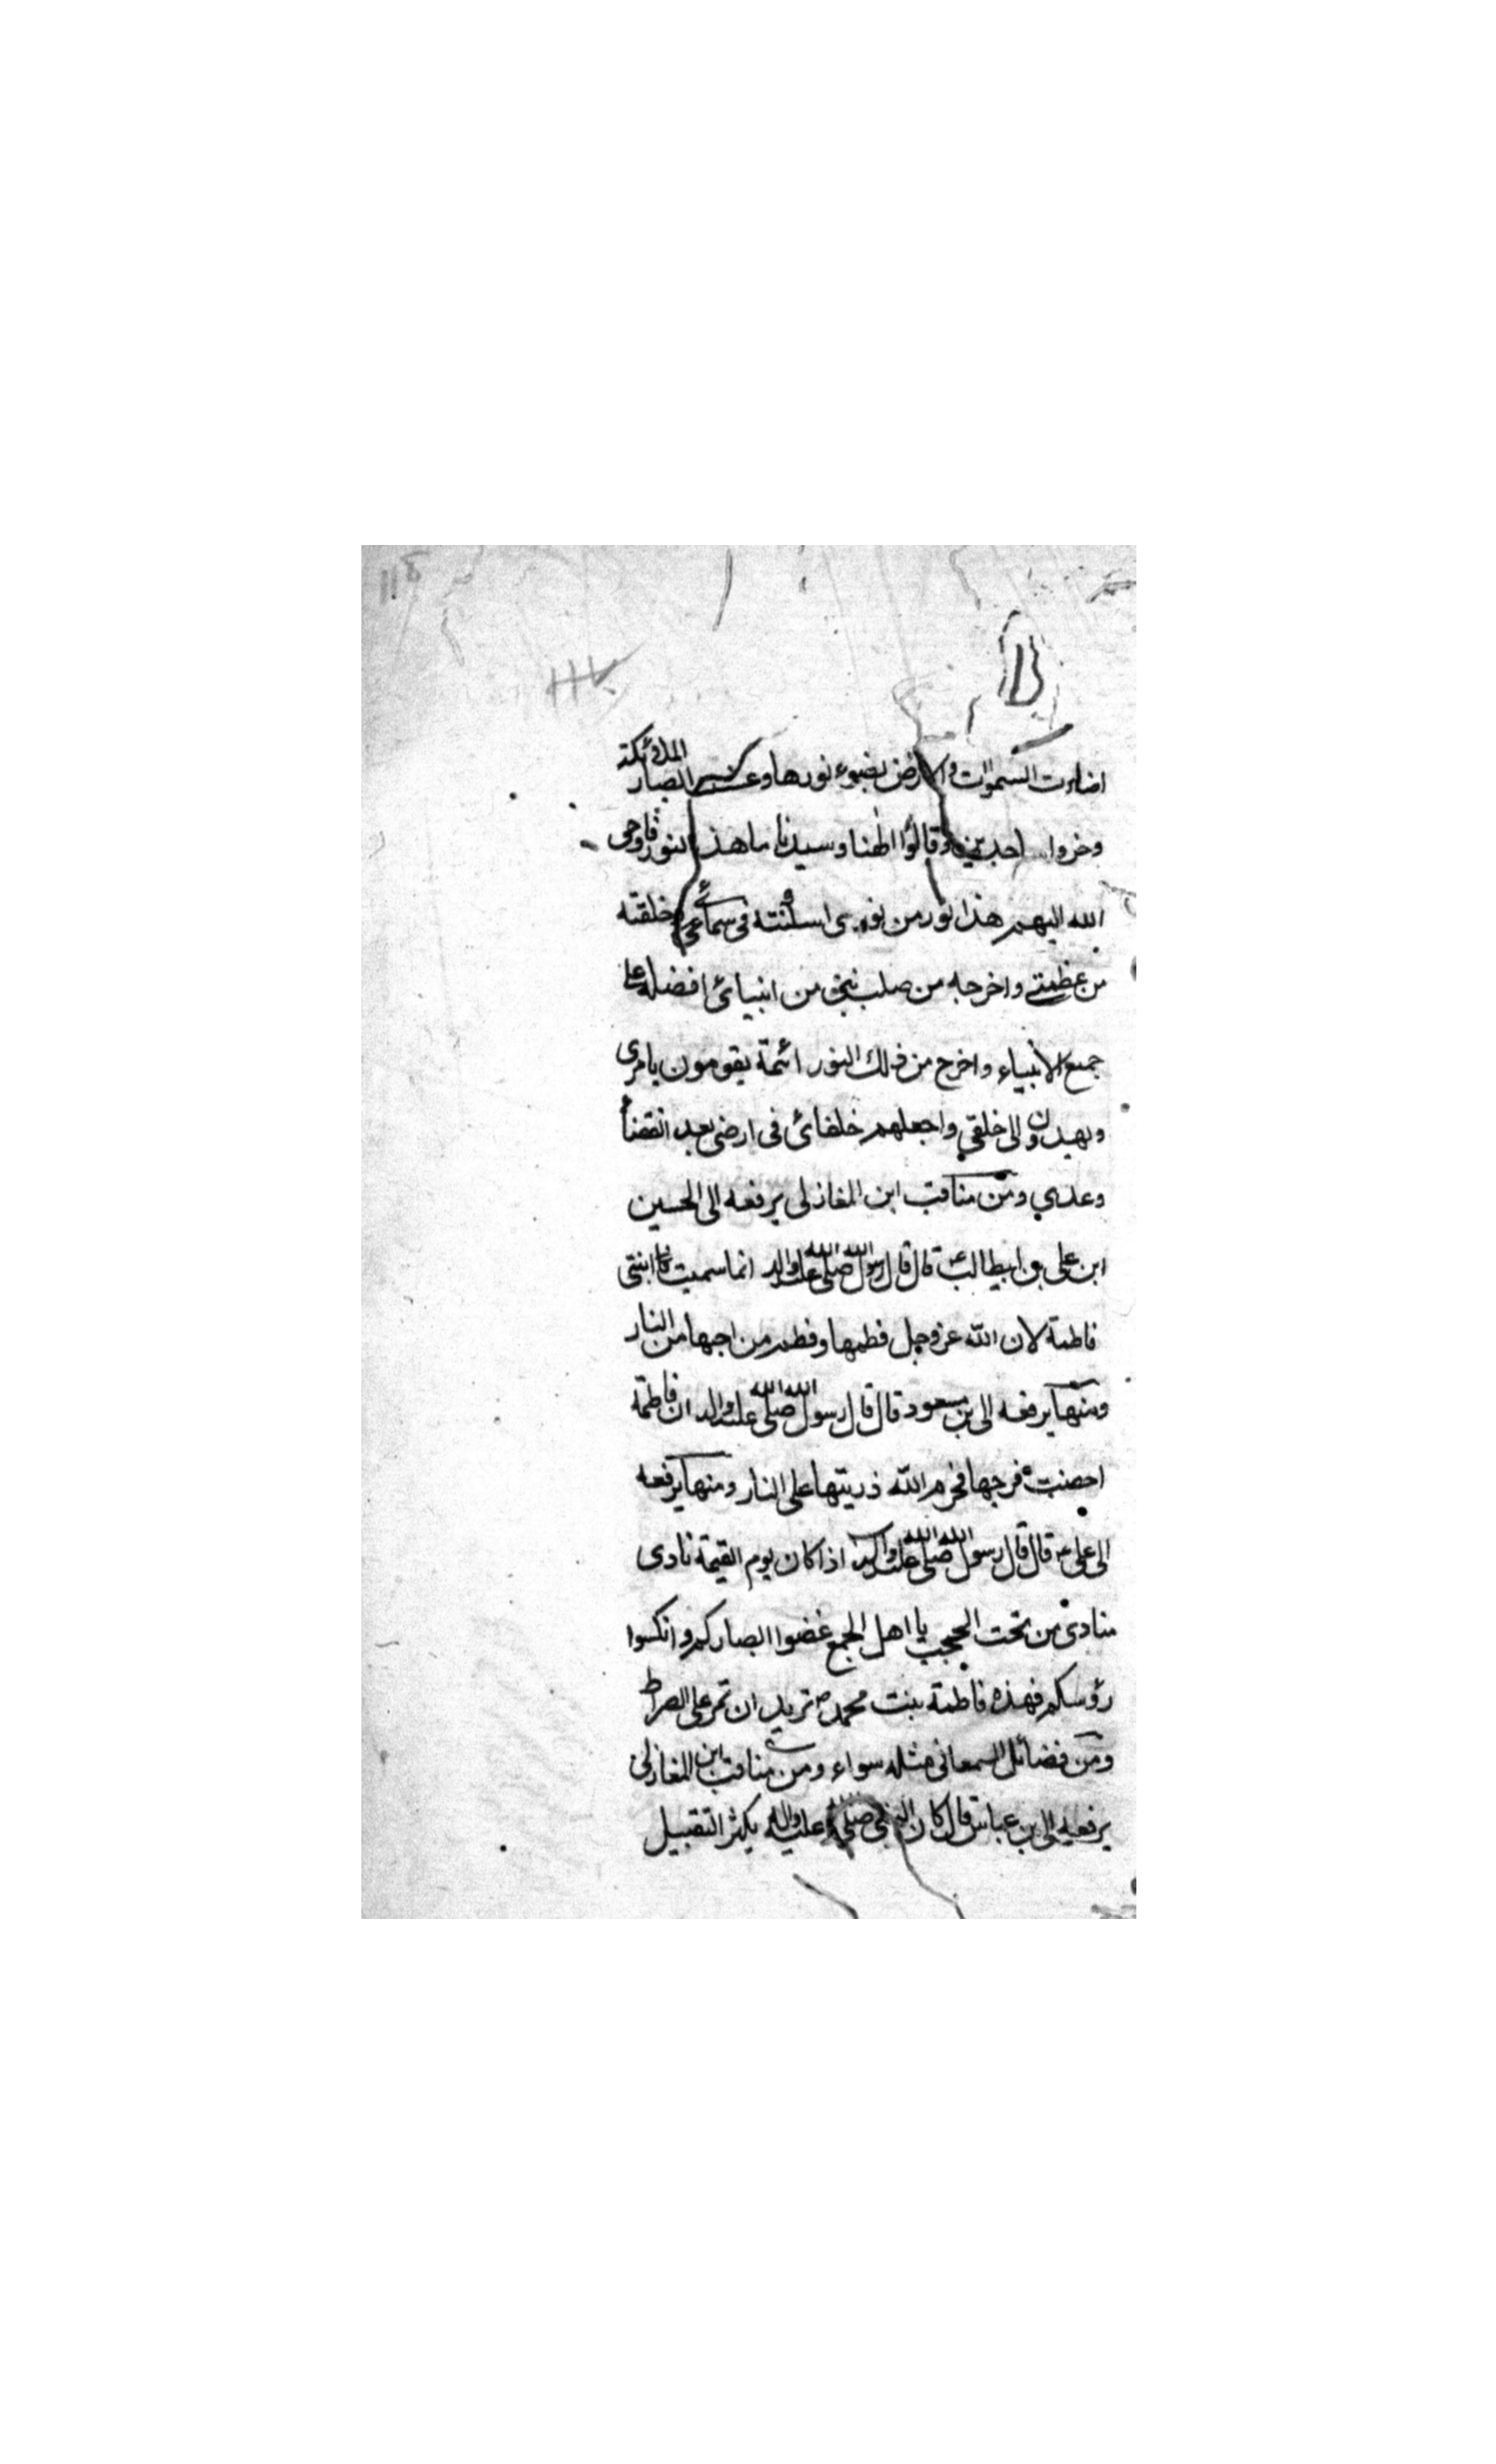 اضاءت السموات والارض بضوء نورها وغشي ابصار الملائكة
وخروا وقالوا الهنا وسيدنا ما هذا النور فاوحى
الله اليهم هذا نور من نوري اسكنته في سمائي خلقته
من عظمتي واخرجه من صلب نبي من انبيائي افضله على
جميع الانبياء واخرج من ذلك النور ائمة يقومون بامري
ويهدون الى خلقي واجعلهم خلفائي في ارضي بعد انقضاء
وعدي ومن مناقب ابن المغازلي يرفعه الى الحسين
ابن علي بن ابيطالب ع قال قال رسول الله صلى الله عليه واله انما سميت ابنتي
فاطمة لان الله عز وجل فطمها وفطم من احبها من النار
ومنها يرفعه الى بن مسعود قال قال رسول الله صلى الله عليه واله ان فاطمة
احصنت فرجها فحرم الله ذريتها على النار ومنها يرفعه
الى علي ع قال قال رسول الله صلى الله عليه واله اذا كان يوم القيمة نادى
منادى من تحت الحجب يا اهل الجمع غضوا ابصاركم وانكسوا
رؤسكم فهذه فاطمة بنت محمد ص تريد ان تمر على الصراط
ومن فضائل السمعاني مثله سواء ومن مناقب ابن المغازلي
يرفعه الى بن عباس قال كان النبي صلى الله عليه واله يكثر التقبيل